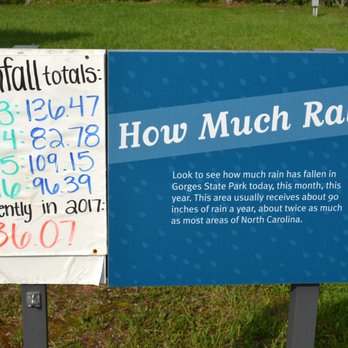 nfall totals:
3: 136.47
4: 82.78
5: 109.15
6: 96.39
ently in 2017:
36.07
How Much Ra
Look to see how much rain has fallen in
Gorges State Park today, this month, this
year. This area usually receives about 90
inches of rain a year, about twice as much
as most areas of North Carolina.